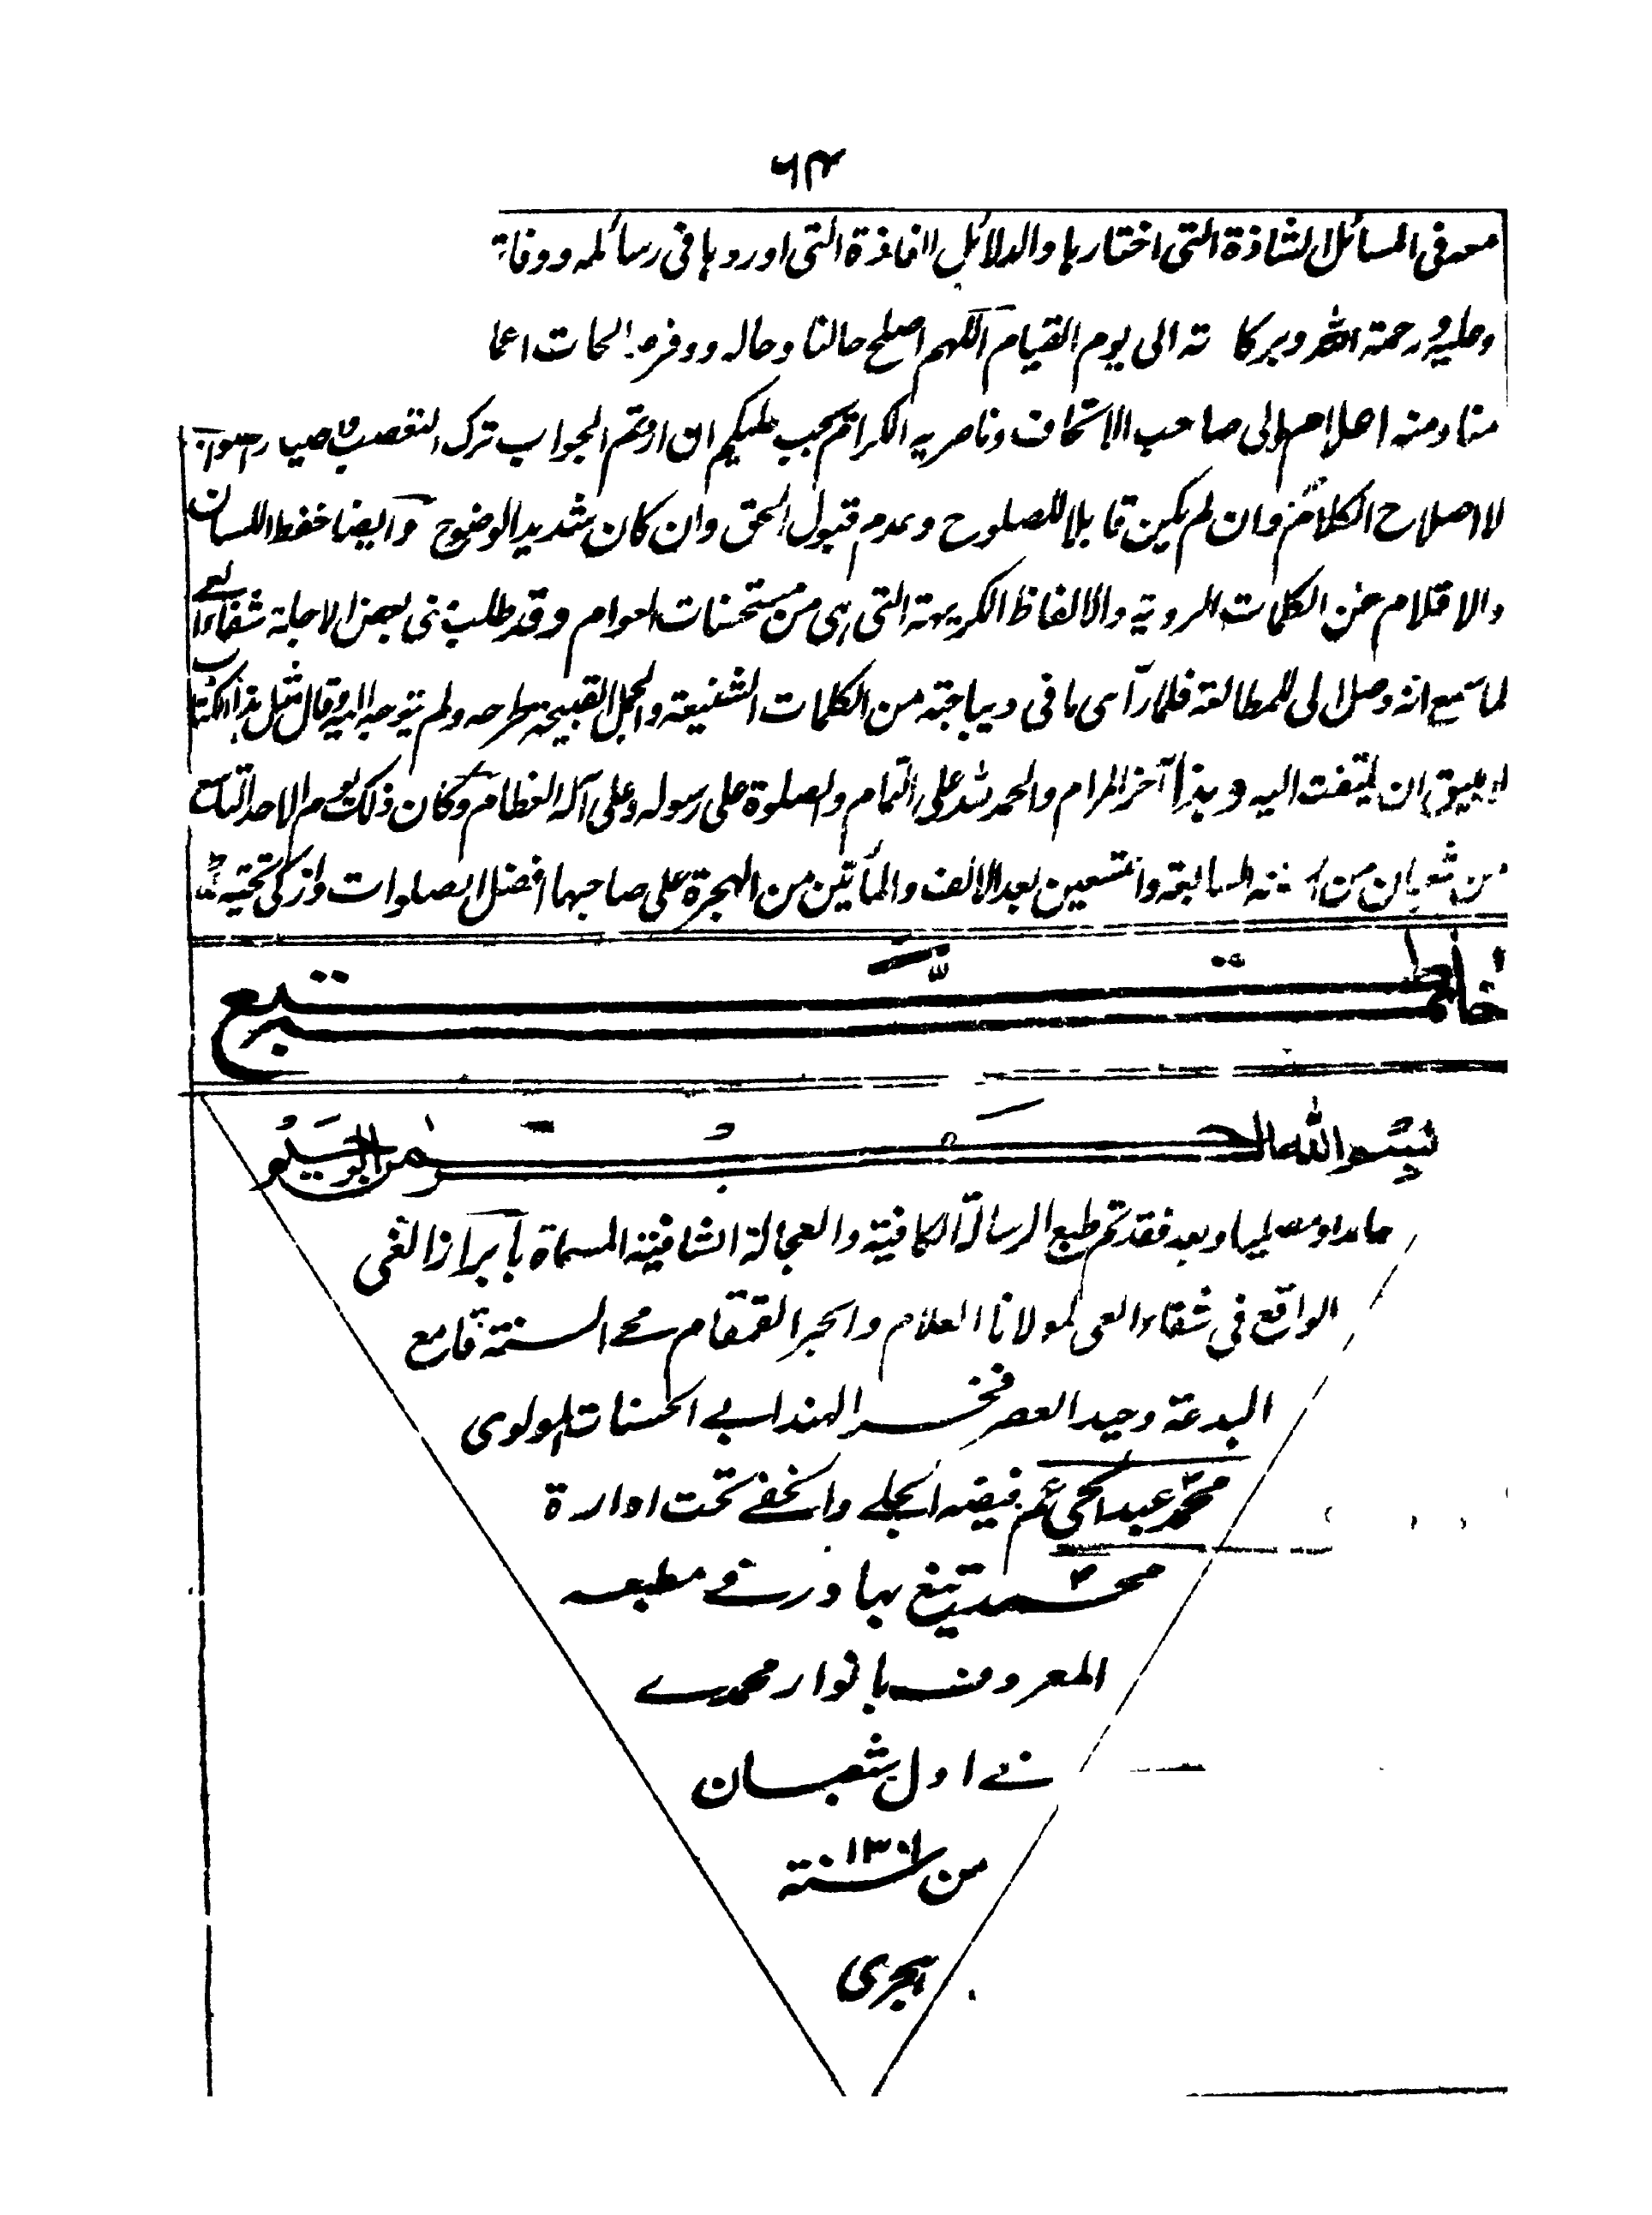 ٦٤
معه فى المسائل الشاذة التى اختارها والدلائل الفاذة التى اوردها فى رسائله ووفاته
وعليه ورحمة الله وبركاته الى يوم القيام اللهم اصلح حالنا وحاله ووفر
منا ومنه اعلام الى صاحب الاتحاف وناصريه الكرام يجب عليكم ان اردتم الجواب ترك التعصب
لاصلاح الكلام وان لم يكن قابلا للصلوح وعدم قبول الحق وان كان شديد الوضوح وايضا حفظ اللسان
والاقلام عن الكلمات الردية والالفاظ الكريهة التى هى من مستحسنات العوام وقد طلب منى بعض الاجلة شفاء العى
لما سمع انه وصل الى للمطالعة فلما رآى ما فى ديباجته من الكلمات الشنيعة والجمل القبيحة طرحه ولم يتوجه اليه وقال مثل هذا الكتاب
لا يليق ان يلتفت اليه وهذا آخر المرام والحمد لله على التمام والصلوة على رسوله وعلى آله العظام وكان ذلك يوم الاحد التاسع
من شعبان من السنة السابعة والتسعين بعد الالف والمأتين من الهجرة على صاحبها افضل الصلوات وازكى تحية
خاتمة الطبع
بسم الله الرحمن الرحيم
حامدا ومصليا وبعد فقد تم طبع الرسالة الكافية والعجالة الشافية المسماة بابراز الغى
الواقع فى شفاء العى لمولانا العلام والحبر القمقام محى السنة قامع
البدعة وحيد العصر فخر الهند ابى الحسنات المولوى
محمد عبد الحى عم فيضه الجلے والخفے تحت ادارة
محمد تيغ بهادر فے مطبعه
المعروف بانوار محمدے
فے اول شعبان
من سنة ١٣٠١
هجرى